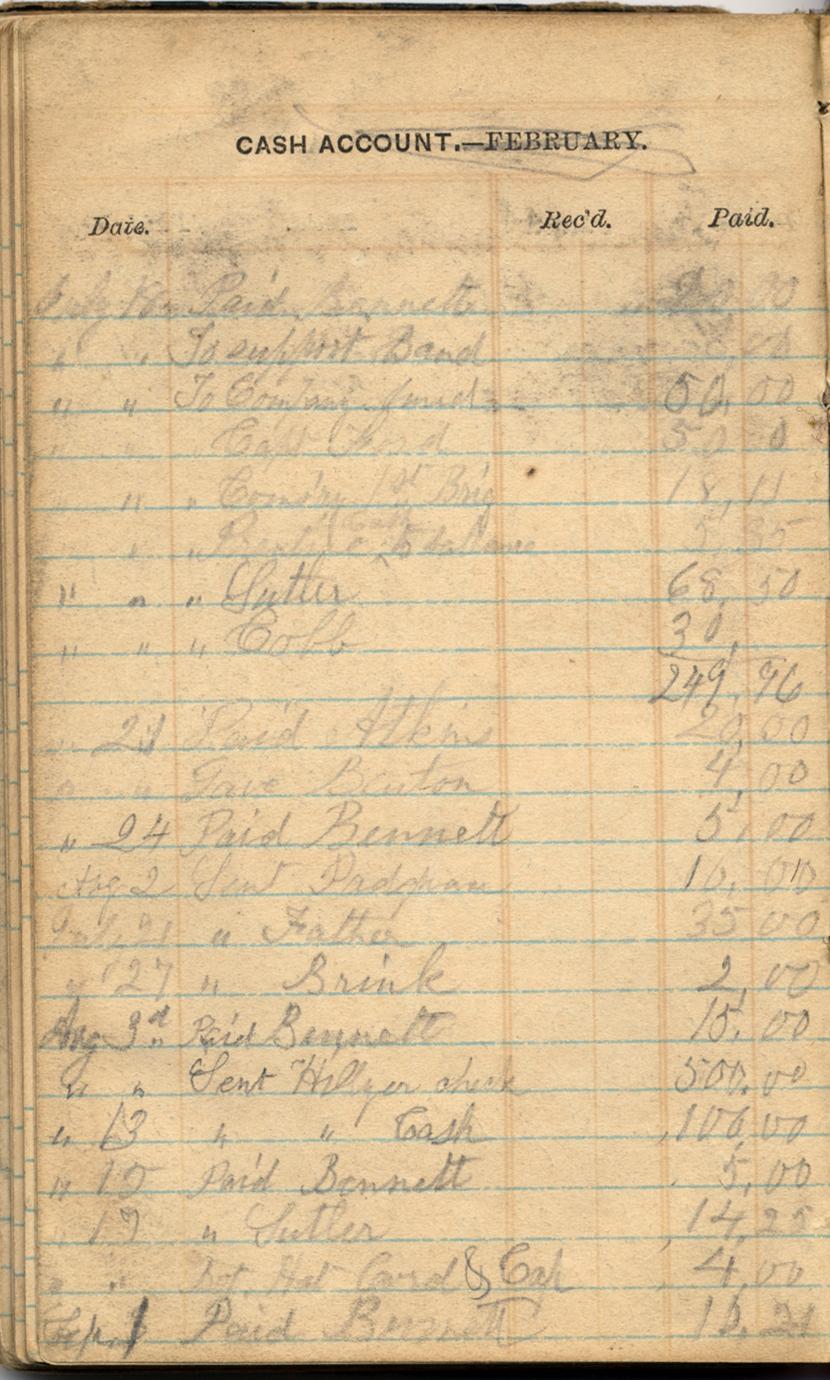 CASH ACCOUNT.—FEBRUARY.
Date. Rec'd. Paid.
July Paid Bennett 00
" " To support Band
" " To Company fund 50,00
" " Capt Cord 50 0
" " " Com'ry 1st Brig 18,11
" " " 5,35
" " " Sutler 68,50
" " " Cobb 30,
249,96
" 21 Paid Atkins 20,00
" " Gave Benton 4,00
" 24 Paid Bennett 5,00
Aug 2 Sent 10,00
21 " Father 35 00
" 27 " Brink 2,00
Aug 3d Paid Bennett 15,00
" " Sent Hillyer check 500,00
" 13 " " Cash 100,00
" 15 Paid Bennett 5,00
" 19 " Sutler 14,25
" " Bot. Hat Cord & Cap 4,00
Sep. 1 Paid Bennett